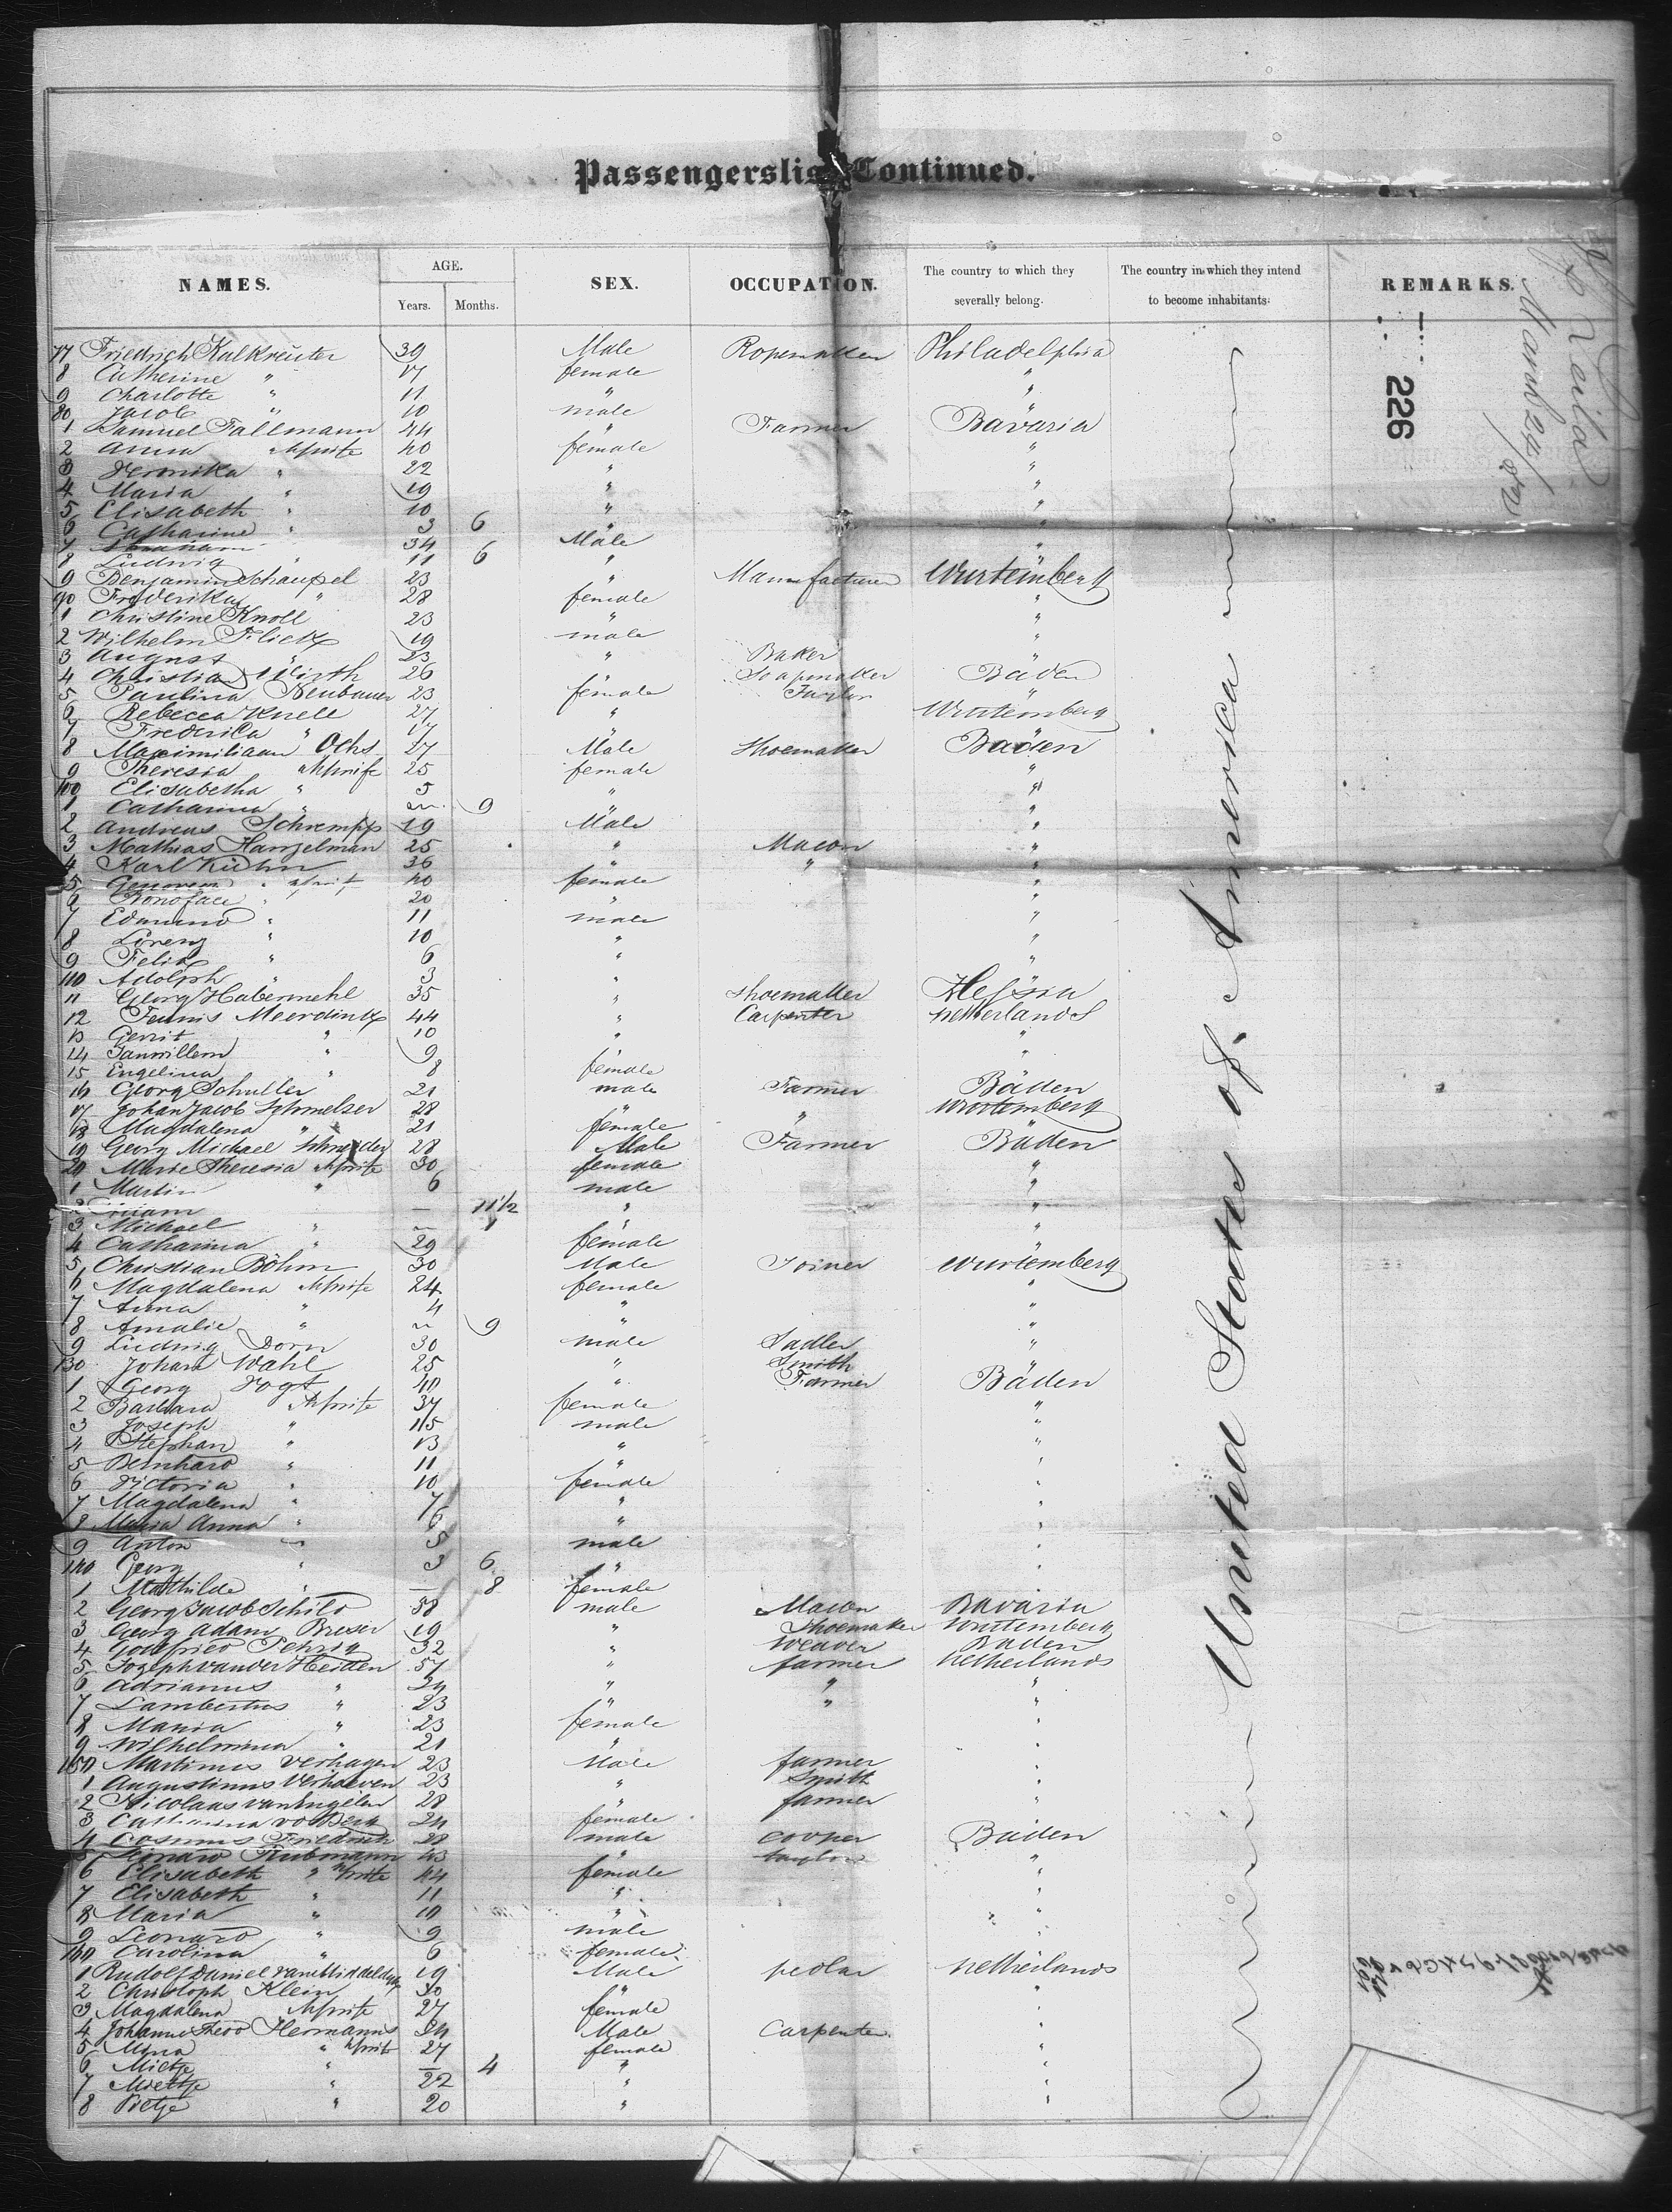 Passengerslist Continued.
NAMES. AGE. SEX. OCCUPATION. The country to which they severally belong. The country in which they intend to become inhabitants: REMARKS.
Years. Months.
77 Friedrich Kalkreuter 39 Male Ropemaker Philadelphia
8 Catherine " 17 female "
9 Charlotte " 11 " "
80 Jacob " 10 male "
1 Samuel Fallmann 44 " Farmer Bavaria
2 Anna " 40 female "
3 Veronika " 22 " "
4 Maria " 19 " "
5 Elisabeth " 10 " "
6 Catharine " 3 6 " "
7 Abraham 34 Male "
8 Ludwig " 11 6 "
9 Benjamin Schaupel 23 " Manufacturer Wurtemberg
90 Frederika " 28 female "
1 Christine Knoll 23 " "
2 Wilhelm Flietz 19 male "
3 August " 23 " Baker "
4 Christian Wirth 26 Soapmaker Baden
5 Paulina Neubauer 23 female Taylor "
6 Rebecca Knele 27 " Wurtemberg
7 Frederica " 17 "
8 Maximiliaan Ochs 27 Male Shoemaker Baden
9 Theresia " 25 female "
100 Elisabetha " 5 " "
1 Catharina " 9 " "
2 Andreas Schrempp 19 Male "
3 Mathias Hangelman 25 " Macon "
4 Karl Kühn 36 " " "
5 " 40 female "
6 Bonoface " 20 " "
7 Edmund " 11 male "
8 Lorenz " 10 " "
9 Felix " 6 " "
110 Adolph " 3 "
11 Georg Habermehl 35 " Shoemaker Hessia
12 Teunis Meerdink 44 " Carpenter netherlands
13 Gerrit " 10 " "
14 Janwillem " 9 "
15 Engelina " 8 female
16 Georg Schuller 21 male Farmer Baden
17 Johan Jacob Schmelzer 28 " " Wurtemberg
18 Magdalena " 21 female
19 Georg Michael Schneider 28 Male Farmer Baden
20 Marie Theresia 30 female "
1 Martin " 6 male "
— 11½ " "
3 Michael " 1 " "
4 Catharina " 29 female "
5 Christian Böhm 30 Male Joiner Wurtemberg
6 Magdalena 24 female "
7 Anna " 4 " "
8 Amalie " 9 " "
9 Ludwig Dorn 30 male Sadler "
130 Johann Wahl 25 " Smith
1 Georg Vogt 40 " Farmer Baden
2 Barbara 37 female "
3 Joseph " 15 male "
4 Stephan " 13 " "
5 Bernhard " 11 " "
6 Victoria " 10 female "
7 Magdalena " 7 " "
8 Maria Anna " 6 " "
9 Anton " 5 male "
140 Georg " 3 6 " "
1 Mathilde " — 8 female "
2 Georg Jacob Schild 58 male Macon Bavaria
3 Georg Adam Breser 19 " Shoemaker Wurtemberg
4 Gottfried 32 " Weaver Baden
5 Joseph vander Heiden 57 " farmer netherlands
6 Adrianus " 24 " " "
7 Lambertus " 23 " " "
8 Maria " 23 female "
9 Wilhelmina " 21 " "
150 Martinus Verhagen 23 Male farmer "
1 Augustinus Verhoeven 23 " Smith "
2 Nicolaas van Engelen 28 " farmer "
3 Catharina 24 female "
4 Cosmus Friedrich 28 male cooper Baden
5 Leonard 43 " taylor "
6 Elisabeth " 44 female "
7 Elisabeth " 11 " "
8 Maria " 10 " "
9 Leonard " 9 male "
160 Carolina " 6 female
1 Rudolf Daniel 19 Male pedlar netherlands
2 Christoph Klein 30 " "
3 Magdalena 27 female "
4 Johannes Theod Hermanns 34 Male Carpenter "
5 Mina " 27 female "
6 Mietje " — 4 " "
7 Mietje " 22 " "
8 Betje " 20 " "
United States of America
226
Zeila
March 24/